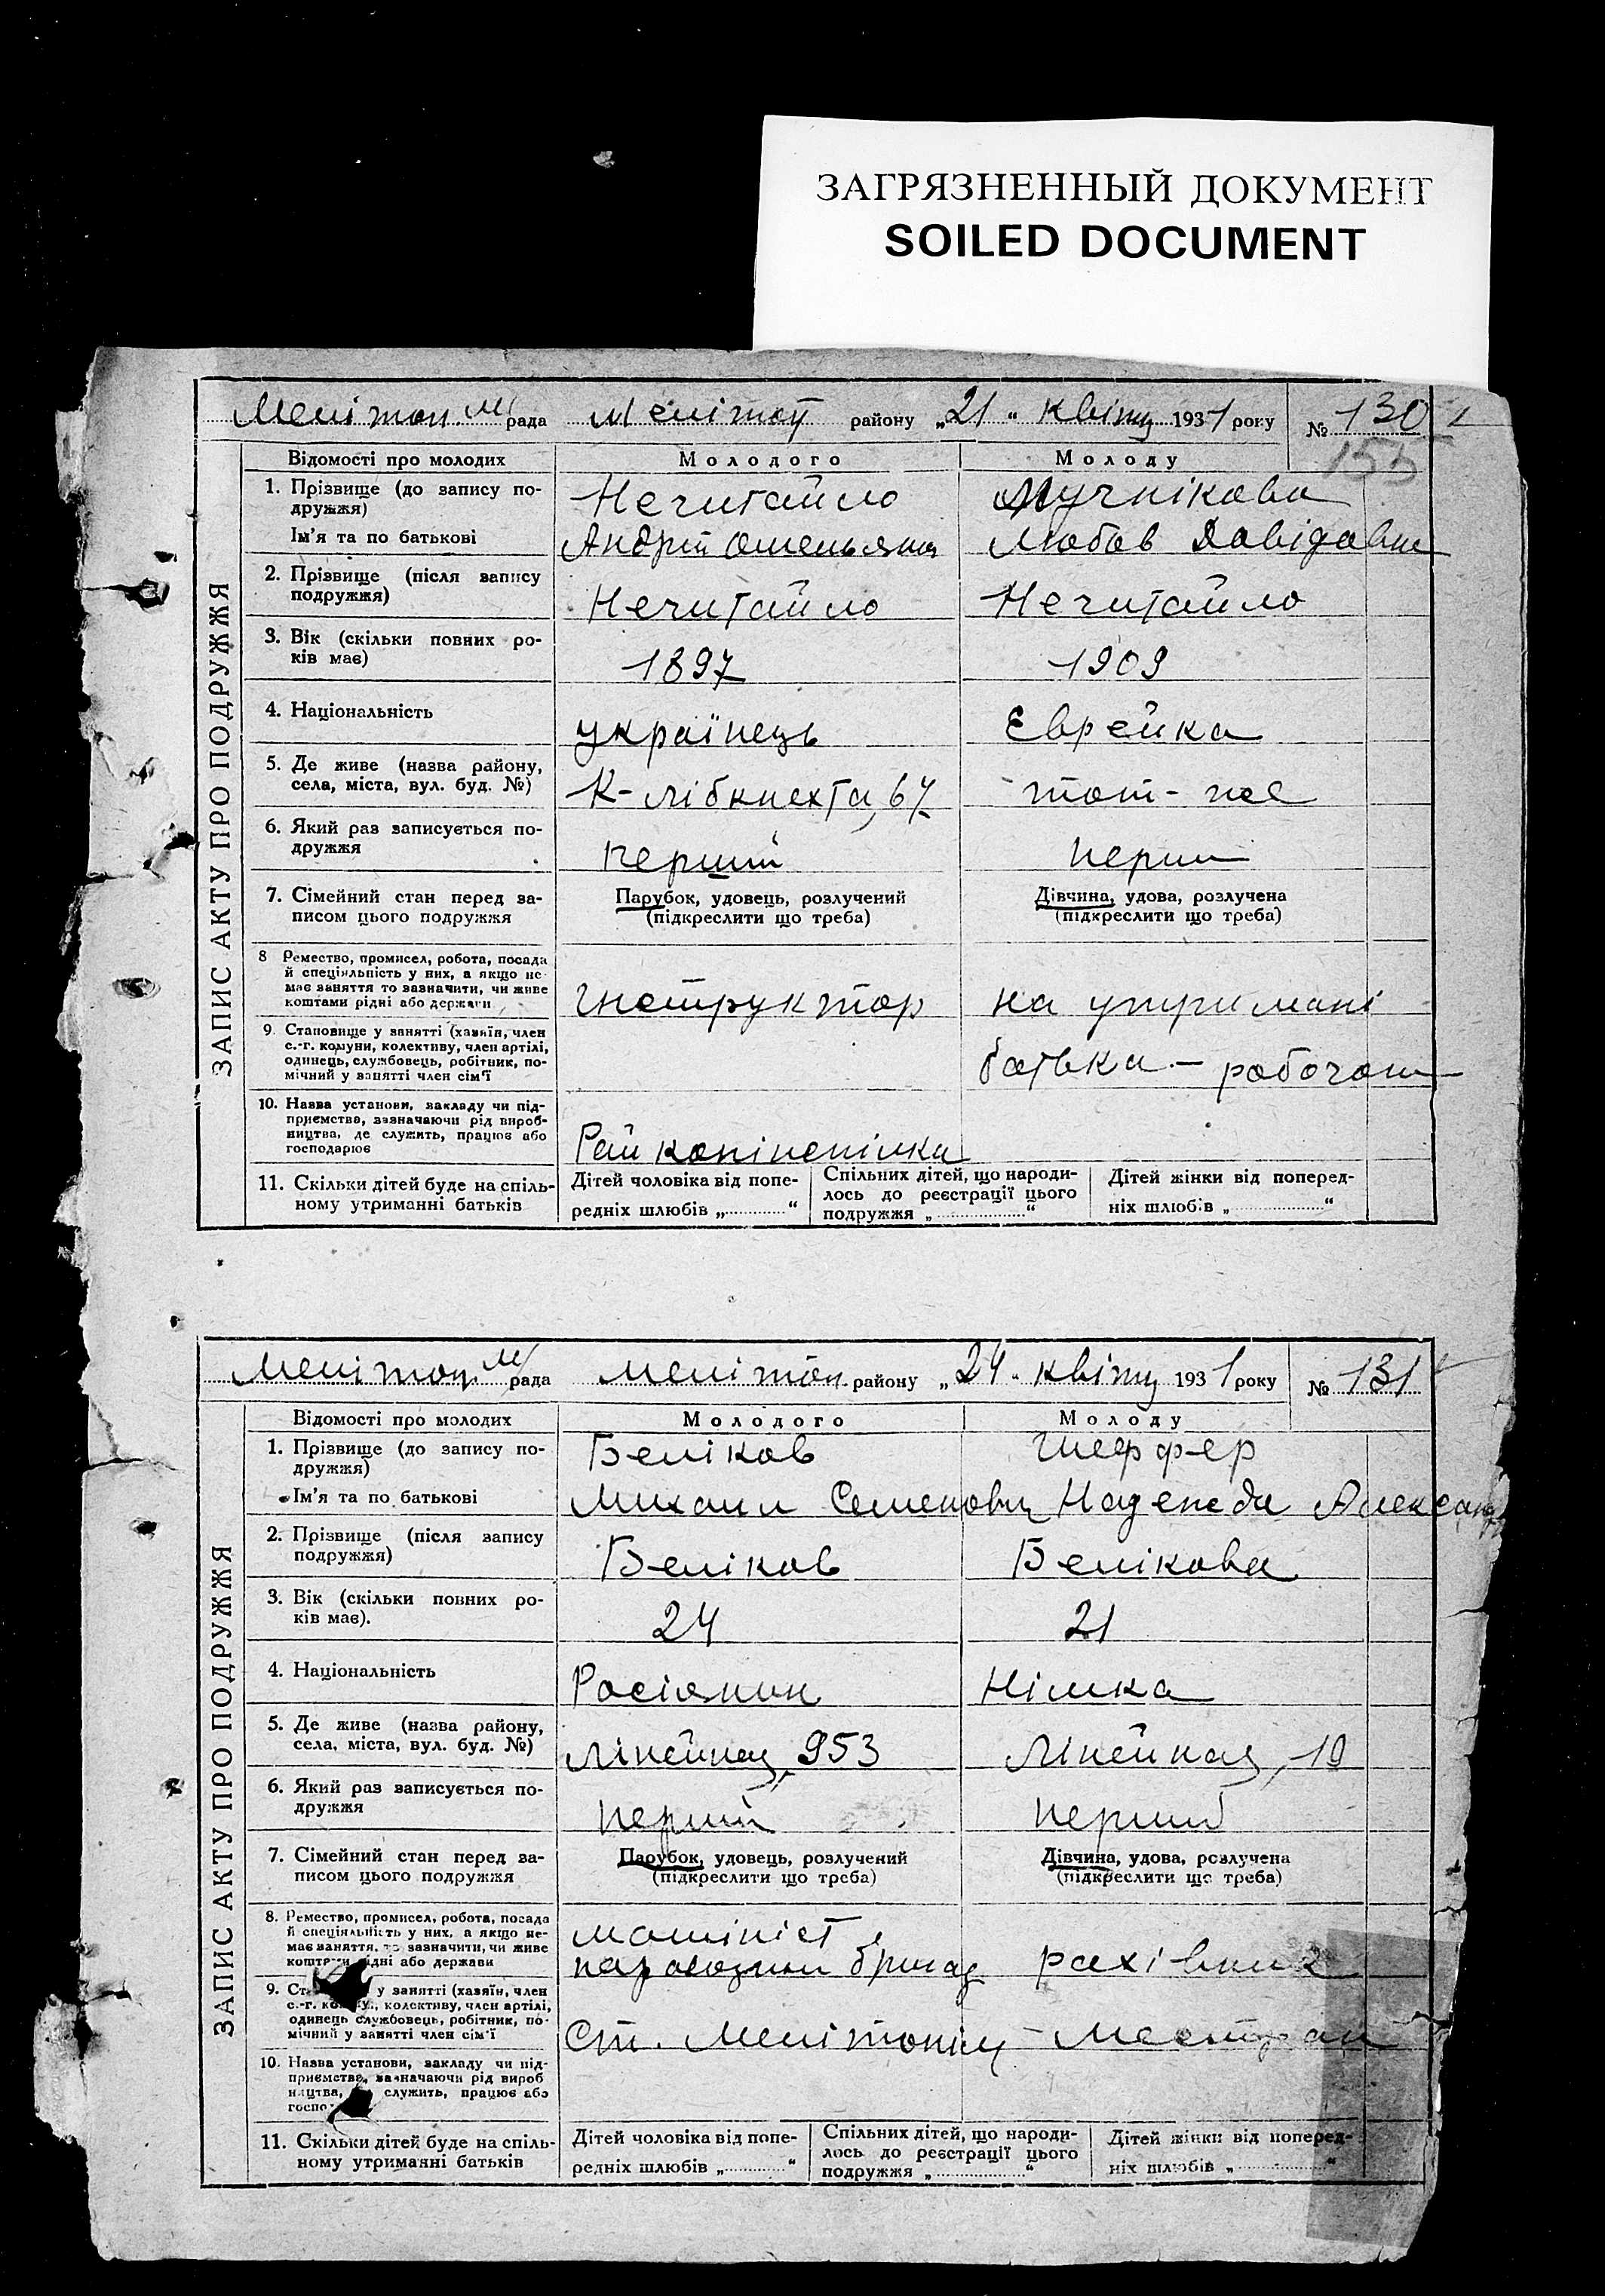 ЗАГРЯЗНЕННЫЙ ДОКУМЕНТ
SOILED DOCUMENT
Мелітоп. М/рада Мелітоп району „21“ квітц 1931 року № 130
155
ЗАПИС АКТУ ПРО ПОДРУЖЖЯ
Відомості про молодих Молодого Молоду
1. Прізвище (до запису по-
дружжя) Нечитайло Мучнікова
Ім'я та по батькові Андрій Омельянов Любов Давідовна
2. Прізвище (після запису
подружжя) Нечитайло Нечитайло
3. Вік (скільки повних ро-
ків має) 1897 1909
4. Національність українець Єврейка
5. Де живе (назва району,
села, міста, вул. буд. №) К-Лібкнехта, 67 тот-же
6. Який раз записується по-
дружжя перший перши
7. Сімейний стан перед за-
писом цього подружжя
Парубок, удовець, розлучений
(підкреслити що треба)
Дівчина, удова, розлучена
(підкреслити що треба)
8 Ремество, промисел, робота, посада
й спеціяльність у них, а якщо не
має заняття то зазначити, чи живе
коштами рідні або держави
Інструктор на утримані
9. Становище у занятті (хазяїн, член
с.-г. комуни, колективу, член артілі,
одинець, службовець, робітник, по-
мічний у занятті член сім'ї
батька - рабочого
10. Назва установи, закладу чи під-
приємства, зазначаючи рід вироб-
ництва, де служить, працює або
господарює
Рай
11. Скільки дітей буде на спіль-
ному утриманні батьків
Дітей чоловіка від попе-
редніх шлюбів „ “
Спільних дітей, що народи-
лось до реєстрації цього
подружжя „ “
Дітей жінки від поперед-
ніх шлюбів „ “
Мелітоп. М/рада Мелітоп. району „24“ квітц 1931 року № 131
ЗАПИС АКТУ ПРО ПОДРУЖЖЯ
Відомості про молодих Молодого Молоду
1. Прізвище (до запису по-
дружжя) Беліков Шеффер
Ім'я та по батькові Михаил Семенович Надежда Александ
2. Прізвище (після запису
подружжя) Беліков Белікова
3. Вік (скільки повних ро-
ків має). 24 21
4. Національність Росіянин Німка
5. Де живе (назва району,
села, міста, вул. буд. №) Лінейная, 953 Лінейная, 19
6. Який раз записується по-
дружжя перший перший
7. Сімейний стан перед за-
писом цього подружжя
Парубок, удовець, розлучений
(підкреслити що треба)
Дівчина, удова, розлучена
(підкреслити що треба)
8. Ремество, промисел, робота, посада
й спеціяльність у них, а якщо не-
має заняття, то зазначити, чи живе
коштами рідні або держави
машініст
бригад рахівник
9. у занятті (хазяїн, член
с.-г. колективу, член артілі,
одинець службовець, робітник, по-
мічний у занятті член сім'ї
Ст. Мелітопіль
10. Назва установи, закладу чи під-
приємства, зазначаючи рід вироб
ництва, служить, працює або
11. Скільки дітей буде на спіль-
ному утриманні батьків
Дітей чоловіка від попе-
редніх шлюбів „ “
Спільних дітей, що народи-
лось до реєстрації цього
подружжя „ “
Дітей жінки від поперед-
ніх шлюбів „ “